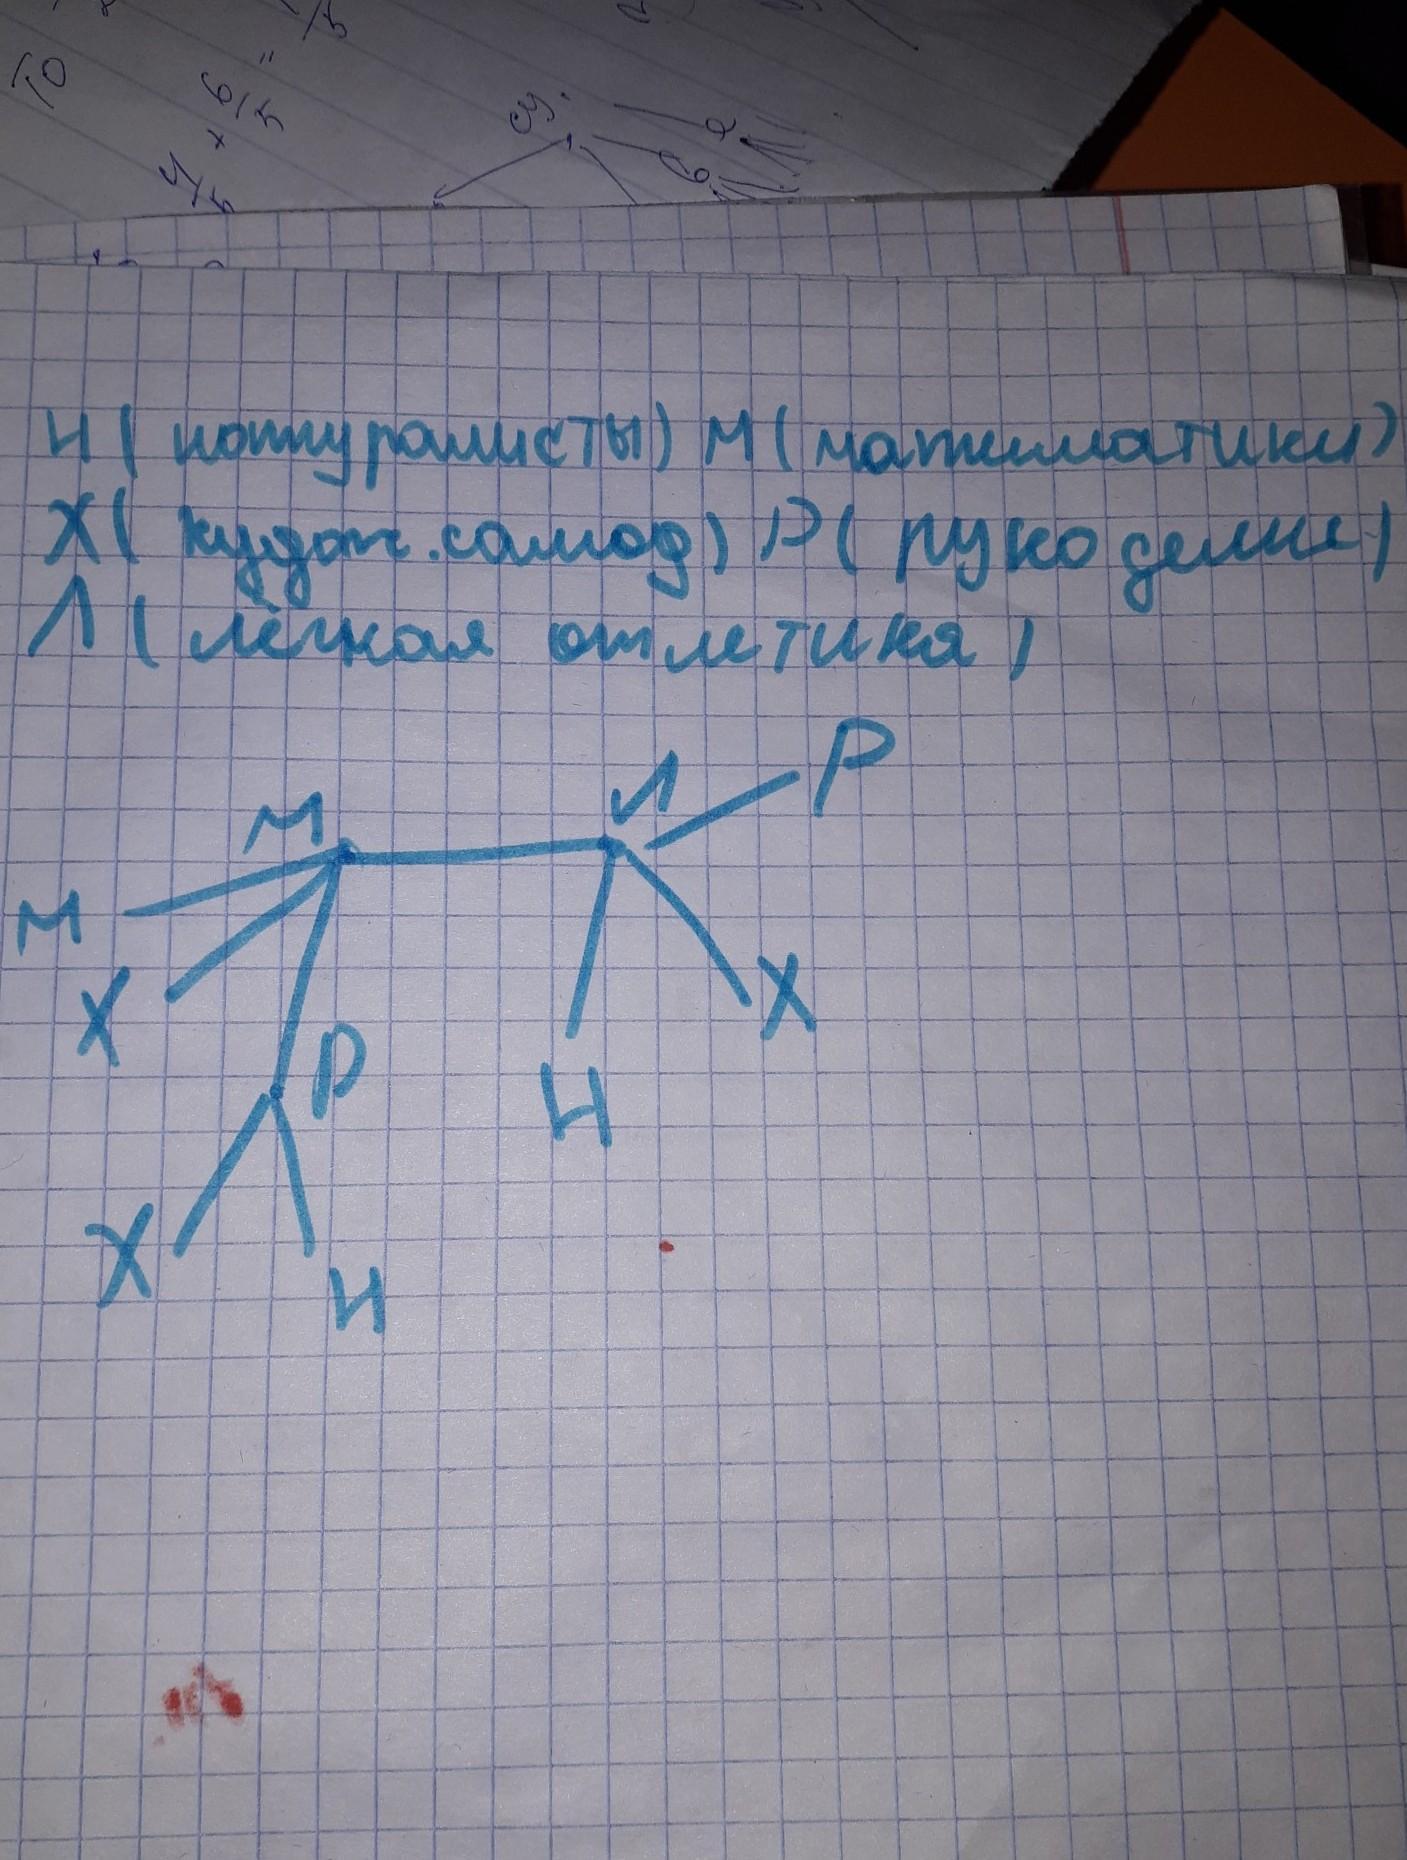 Н ( натуралисты) М ( математики)
Х ( худож. самод) Р ( рукоделие)
Л ( лёгкая атлетика)
Л Р
М
М
Х Х
Р
Н
Х
Н